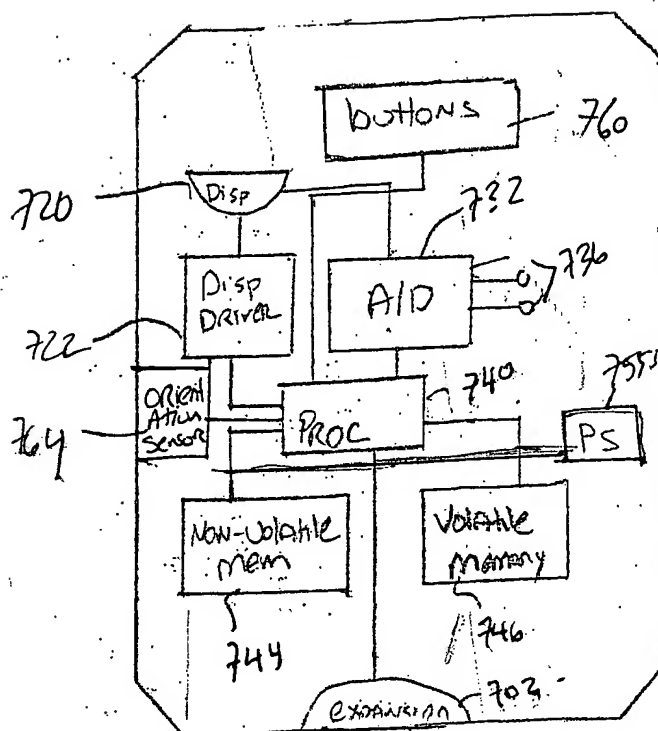 buttons
760
720
Disp
732
736
Disp
DRIVER
A/D
722
740
ORient
Ation
Sensor
764
PROC
PS
Non-volatile
mem
Volatile
Memory
744
746
702
expansion